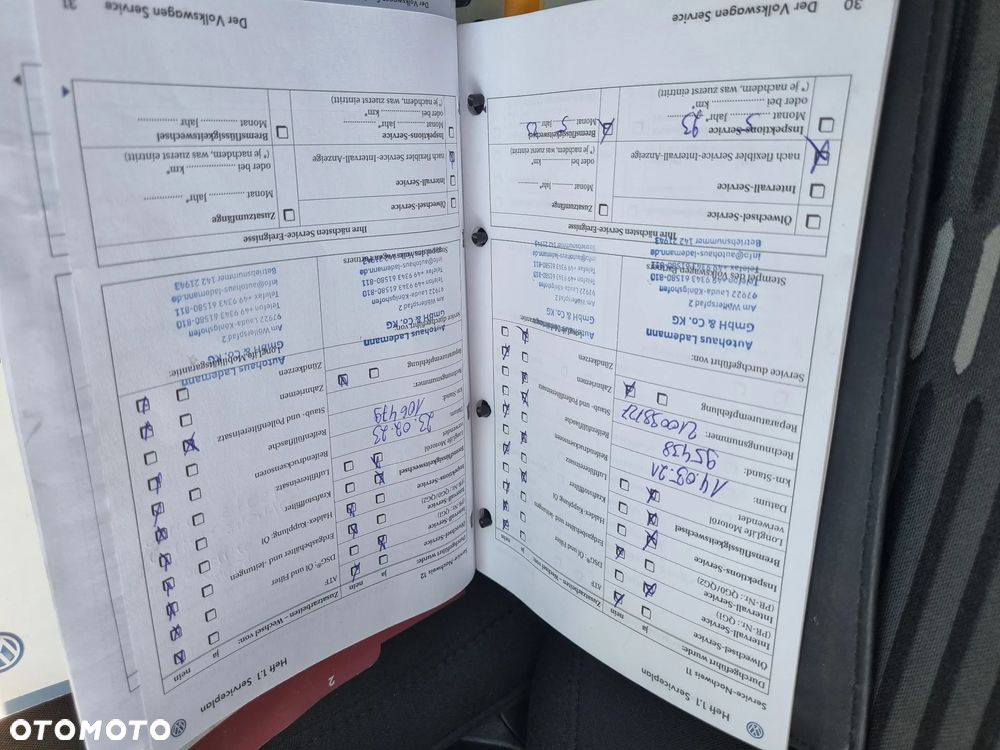 Heft 1.1 Serviceplan
Service-Nachweis 11
Durchgeführt wurde:
ja
nein
Ölwechsel-Service
Intervall-Service
(PR-Nr.: QG1)
Intervall-Service
(PR-Nr.: QG0/QG2)
Inspektions-Service
Bremsflüssigkeitswechsel
LongLife Motoröl
verwendet
Datum:
14.09.21
km-Stand:
95438
Rechnungsnummer:
Reparaturempfehlung
Service durchgeführt von:
Zusatzarbeiten - Wechsel von:
ja
nein
ATF
DSG® Öl und Filter
Erdgasbehälter und -leitungen
Haldex-Kupplung Öl
Kraftstofffilter
Luftfiltereinsatz
Reifendrucksensoren
Reifenfüllflasche
Staub- und Pollenfiltereinsatz
Zahnriemen
Zündkerzen
Autohaus Lademann
GmbH & Co. KG
Am Wöllerspfad 2
97922 Lauda-Königshofen
Telefon +49 9343 61580-810
Telefax +49 9343 61580-811
info@autohaus-lademann.de
Betriebsnummer 142 21943
Stempel des Volkswagen Partners
Ihre nächsten Service-Ereignisse
Ölwechsel-Service
Intervall-Service
nach flexibler Service-Intervall-Anzeige
Inspektions-Service
Monat 5 Jahr* 23
oder bei km*
(*je nachdem, was zuerst eintritt)
Zusatzumfänge
Monat Jahr*
oder bei km*
(*je nachdem, was zuerst eintritt)
Bremsflüssigkeitswechsel
Monat Jahr
30 Der Volkswagen Service
Heft 1.1 Serviceplan
2
Service-Nachweis 12
Durchgeführt wurde:
ja
nein
Ölwechsel-Service
Intervall-Service
(PR-Nr.: QG1)
Intervall-Service
(PR-Nr.: QG0/QG2)
Inspektions-Service
Bremsflüssigkeitswechsel
LongLife Motoröl
verwendet
Datum:
23.08.23
km-Stand:
106479
Rechnungsnummer:
Reparaturempfehlung
Service durchgeführt von:
Zusatzarbeiten - Wechsel von:
ja
nein
ATF
DSG® Öl und Filter
Erdgasbehälter und -leitungen
Haldex-Kupplung Öl
Kraftstofffilter
Luftfiltereinsatz
Reifendrucksensoren
Reifenfüllflasche
Staub- und Pollenfiltereinsatz
Zahnriemen
Zündkerzen
LongLife Mobilitätsgarantie:
Autohaus Lademann
GmbH & Co. KG
Am Wöllerspfad 2
97922 Lauda-Königshofen
Telefon +49 9343 61580-810
Telefax +49 9343 61580-811
info@autohaus-lademann.de
Betriebsnummer 142 21943
Stempel des Volkswagen Partners
Ihre nächsten Service-Ereignisse
Ölwechsel-Service
Intervall-Service
nach flexibler Service-Intervall-Anzeige
Inspektions-Service
Monat Jahr*
oder bei km*
(*je nachdem, was zuerst eintritt)
Zusatzumfänge
Monat Jahr*
oder bei km*
(*je nachdem, was zuerst eintritt)
Bremsflüssigkeitswechsel
Monat Jahr
Der Volkswagen Service 31
OTOMOTO